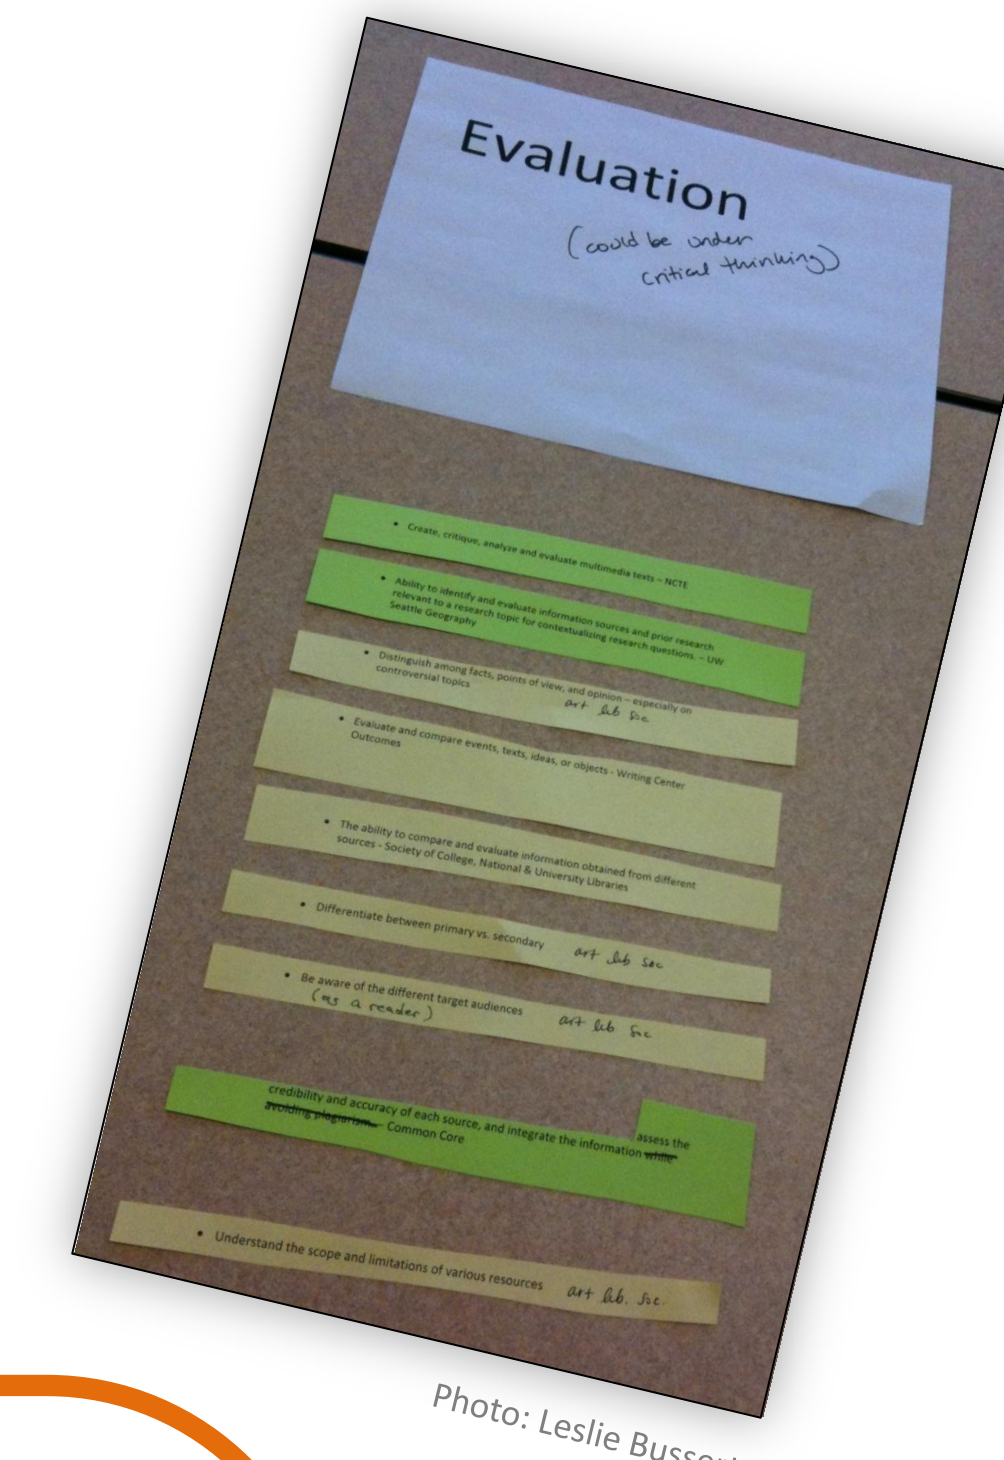 Evaluation
(could be under
critical thinking)
• Create, critique, analyze and evaluate multimedia texts – NCTE
• Ability to identify and evaluate information sources and prior research
relevant to a research topic for contextualizing research questions. – UW
Seattle Geography
• Distinguish among facts, points of view, and opinion – especially on
controversial topics
art lib soc
• Evaluate and compare events, texts, ideas, or objects - Writing Center
Outcomes
• The ability to compare and evaluate information obtained from different
sources - Society of College, National & University Libraries
• Differentiate between primary vs. secondary art lib soc
• Be aware of the different target audiences art lib soc
(as a reader)
assess the
credibility and accuracy of each source, and integrate the information while
avoiding plagiarism. - Common Core
• Understand the scope and limitations of various resources art lib. soc.
Photo: Leslie